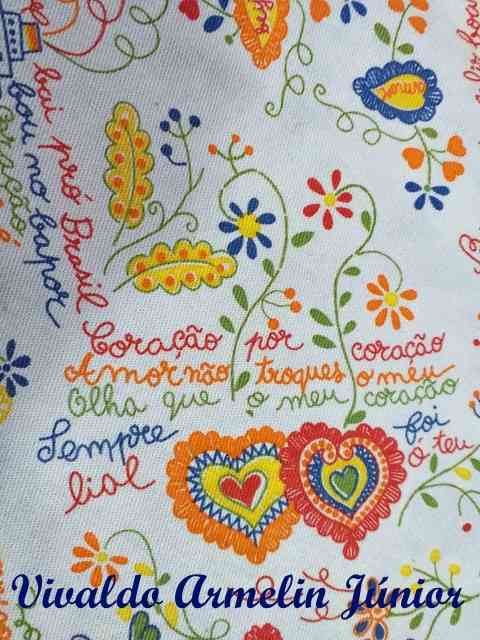 amor
bai pró Brasil
bou no bapor
Coração por coração
Amor não troques o méu
Olha que o meu coração
Sempre foi
lial ó teu
Vivaldo Armelin Júnior